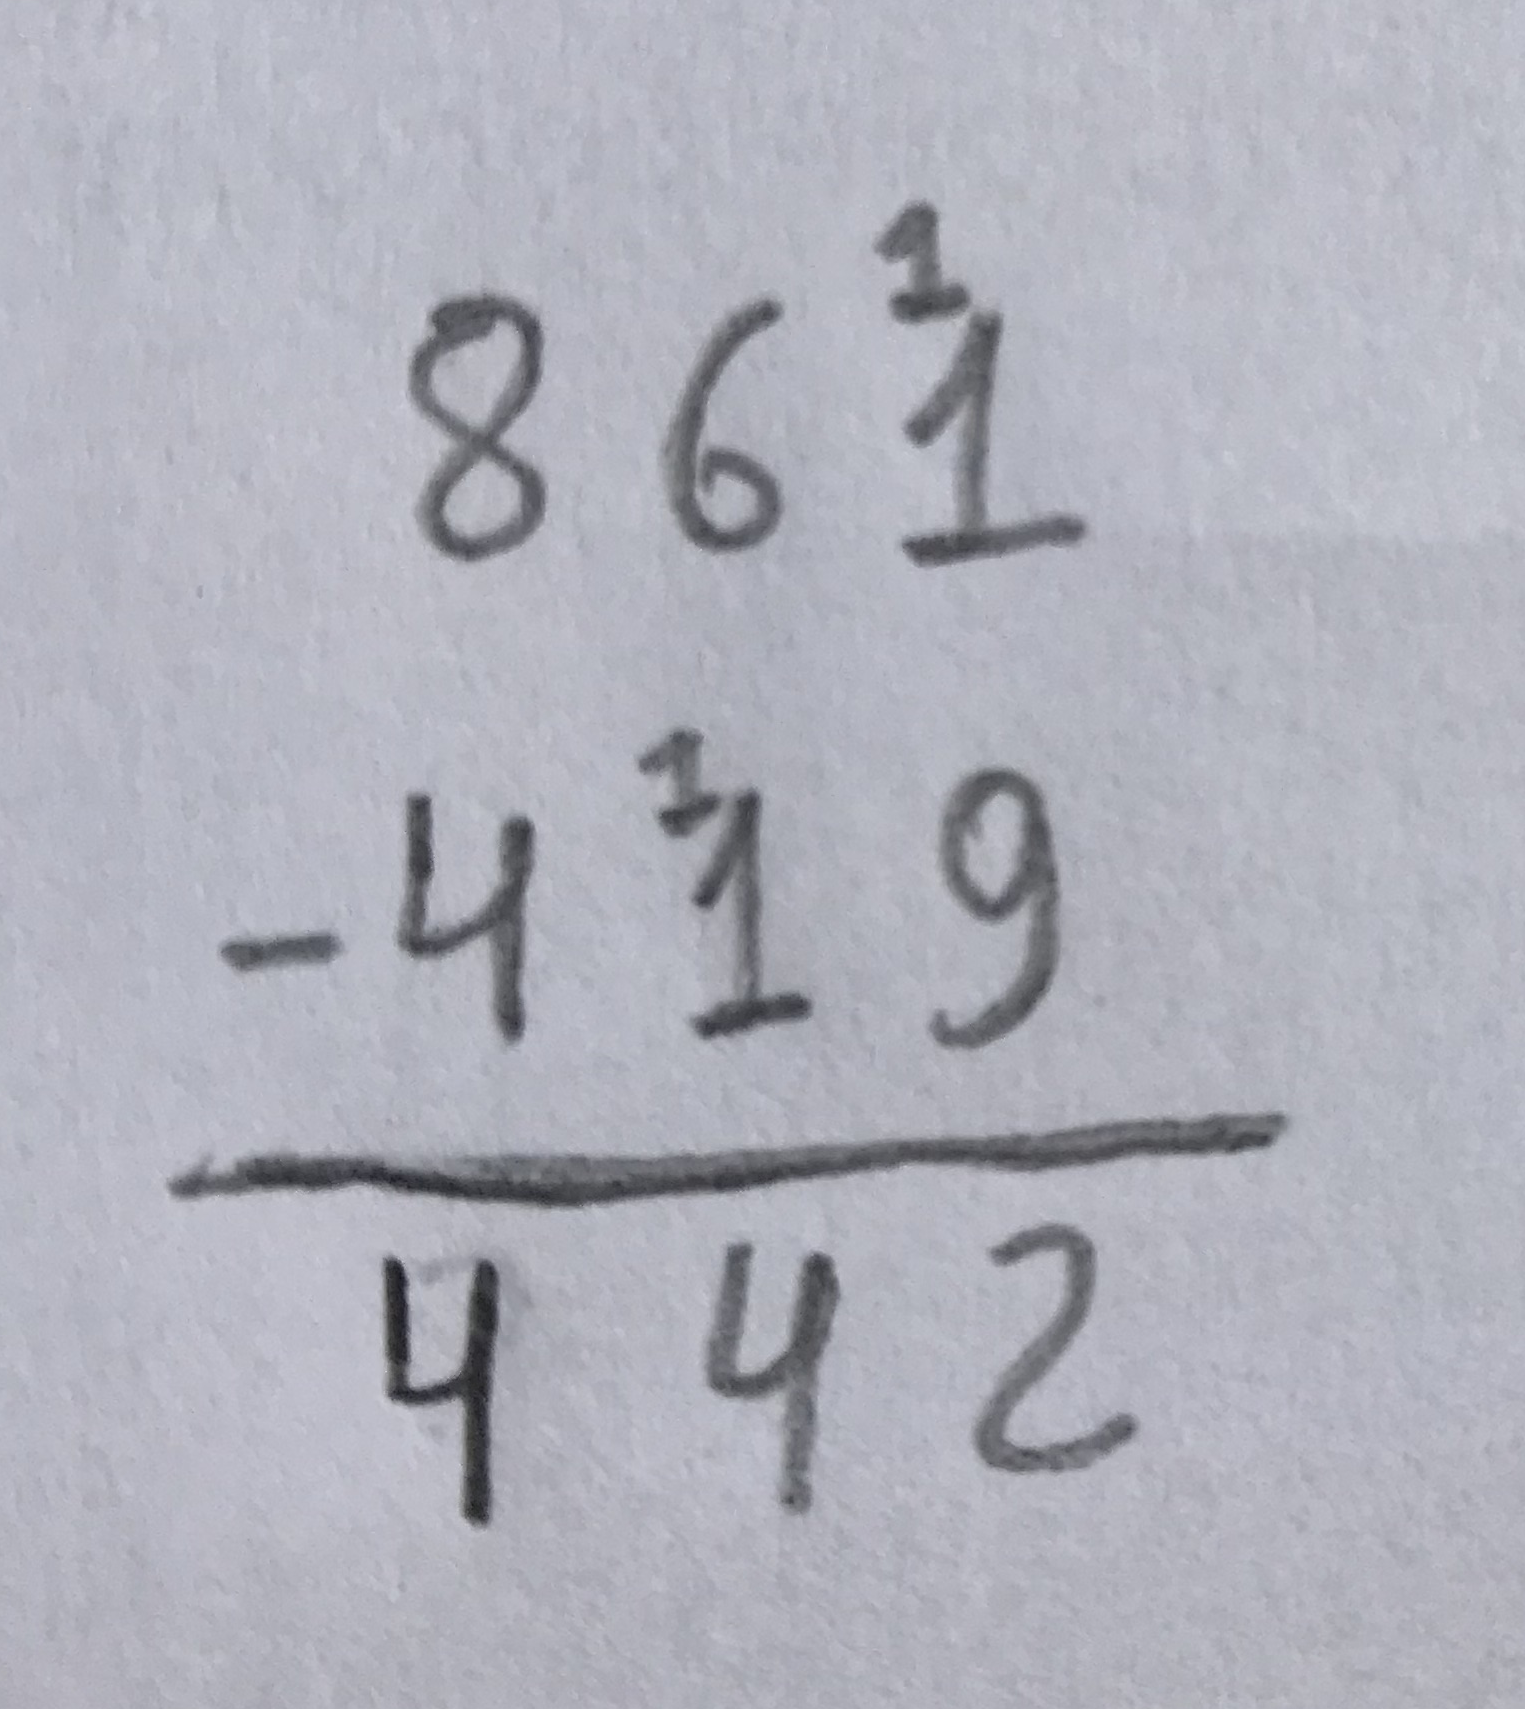 8 6 ¹1
- 4 ¹1 9
4 4 2